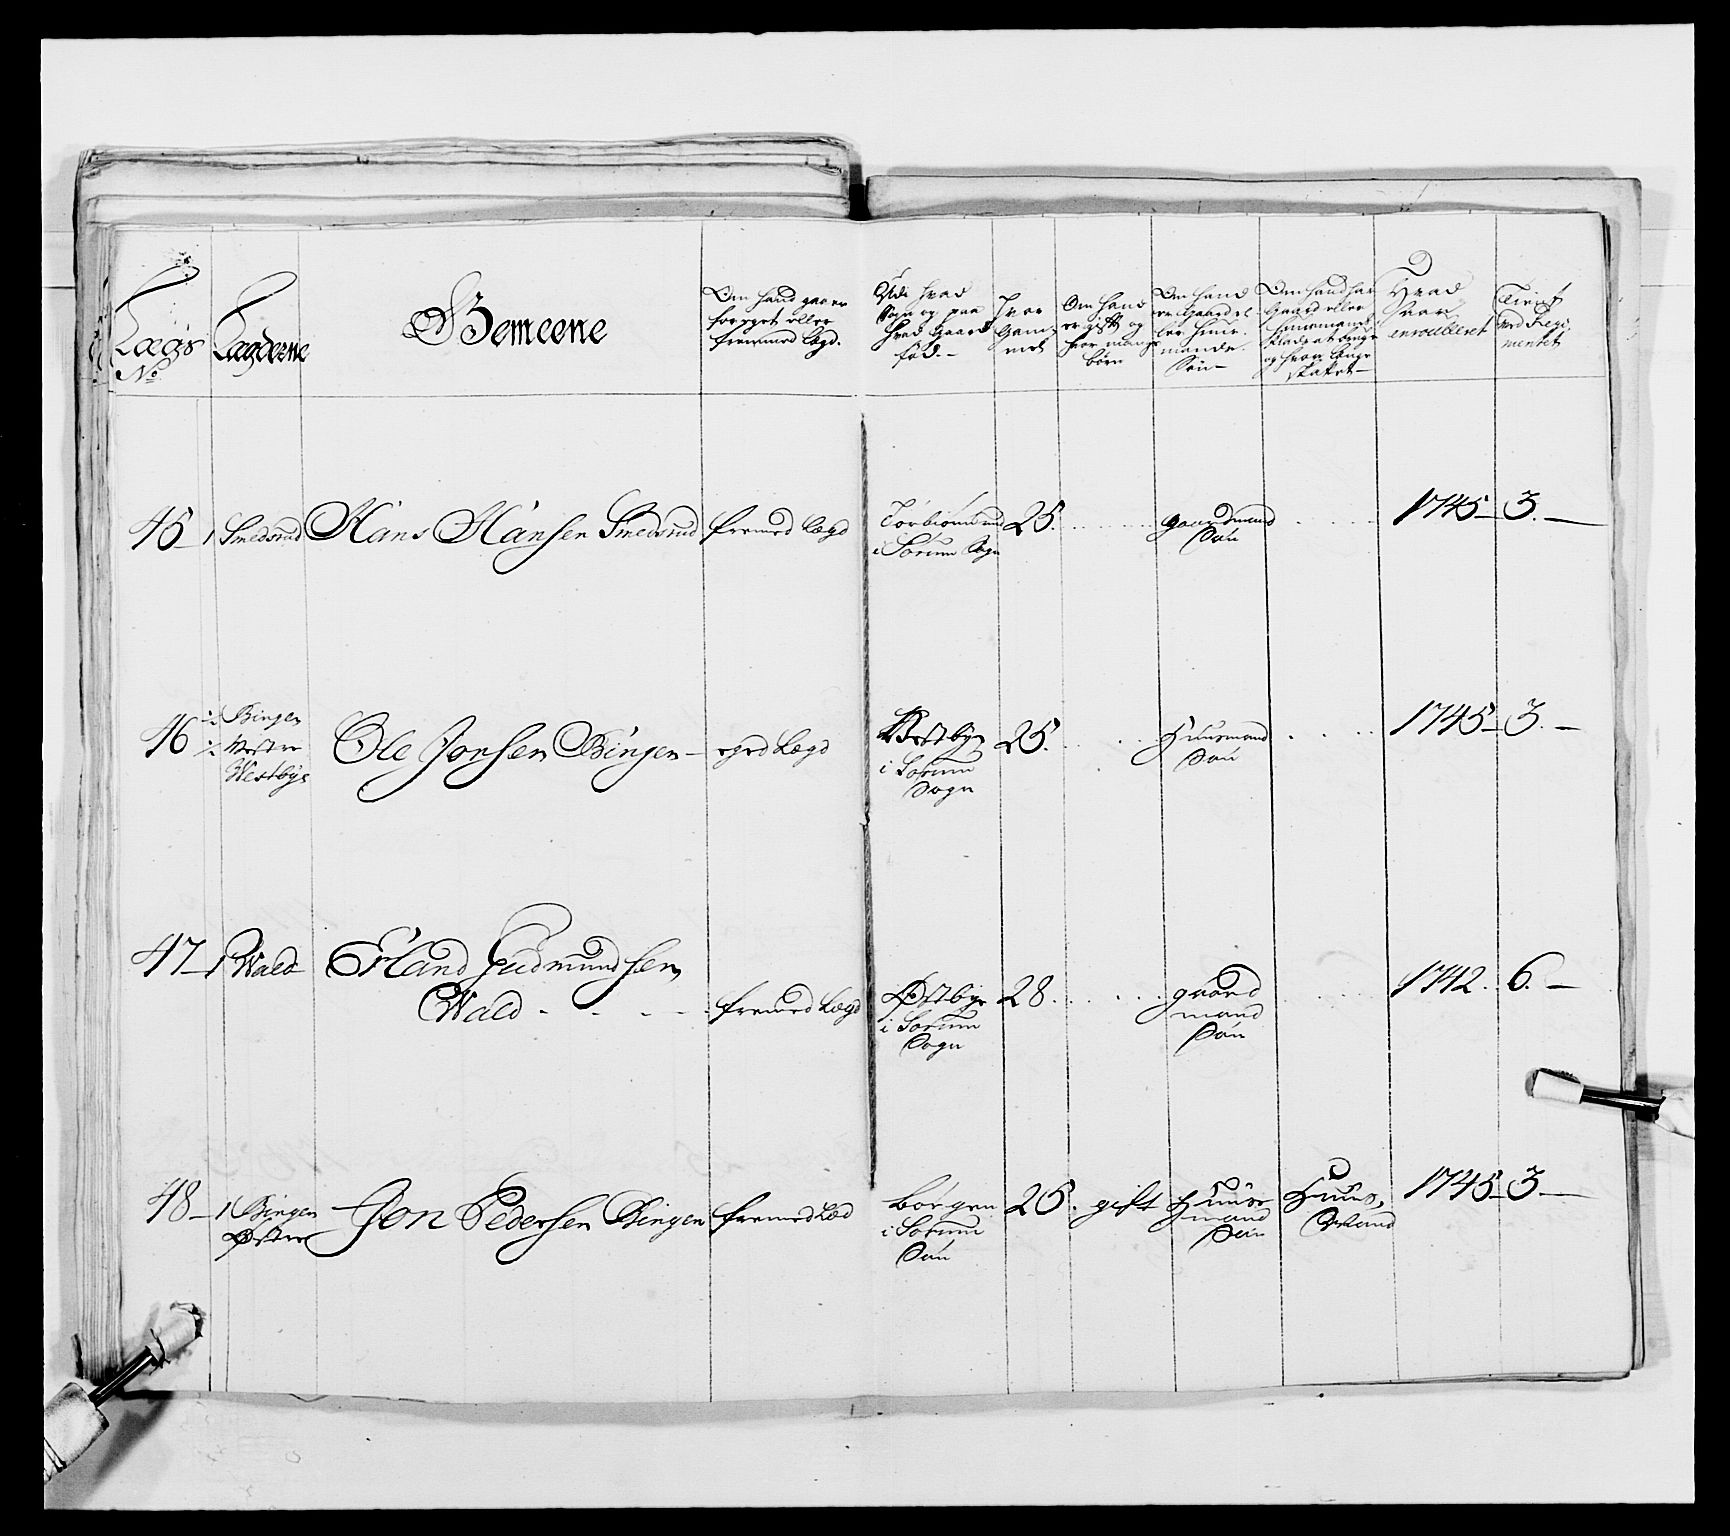 Lægs No Lægderne Gemeene
Om hand gaar er
forrget eller
fremmed lægd.
Udi hvad
Sogn og paa
hvad Gaard
fød.
Hvor
Gam-
mel
Om hand
er gift og
hvor mange
børn
Om hand
er Gaard el-
ler Huus-
mands
Søn
Om hand har
Gaard eller
huusmands
Plads at bruge
og hvor længe
Hvad
Aar
enroulleret
Tient
ved Regi-
mentet
45 1 Smedsrud Hans Hansen Smedsrud fremed Lægd
i Sørum Sogn
25. gaardmand
Søn
1745 3.
46 ½ Bingen
½ Vestre
Westbye
Ole Jonsen Bingen eged Lægd
Westbye
i Sørum
Sogn
25. Huusmand
Søn
1745 3.
47 1 Wald Erland Gudmundsen
Wald fremed Lægd
Østbye
i Sørum
Sogn
28. gaard
mand
Søn
1742. 6.
48 1 Bingen
Østre
Jon Pedersen Bingen fremed Læd
Børgen
i Sørum
Søn
25. gift Huus
mand
Søn
Huus,
Mand
1745 3